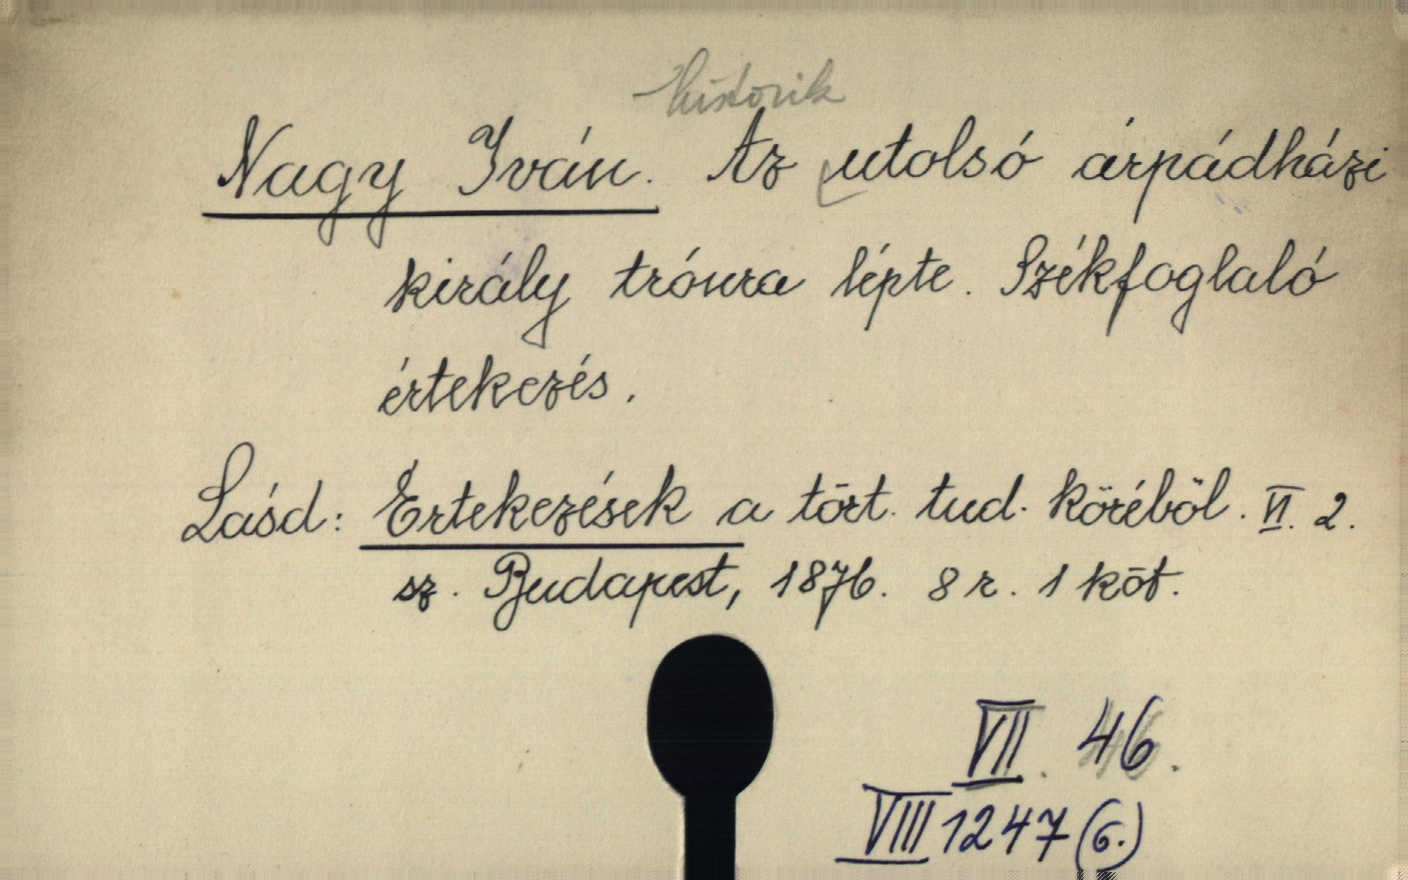 historik
Nagy Iván. Az utolsó árpádházi
király trónra lépte. Székfoglaló
értekezés.
Lásd: Értekezések a tört. tud. köréből. VI. 2.
sz. Budapest, 1876. 8 r. 1 köt.
VII. 46.
VIII 1247 (6.)